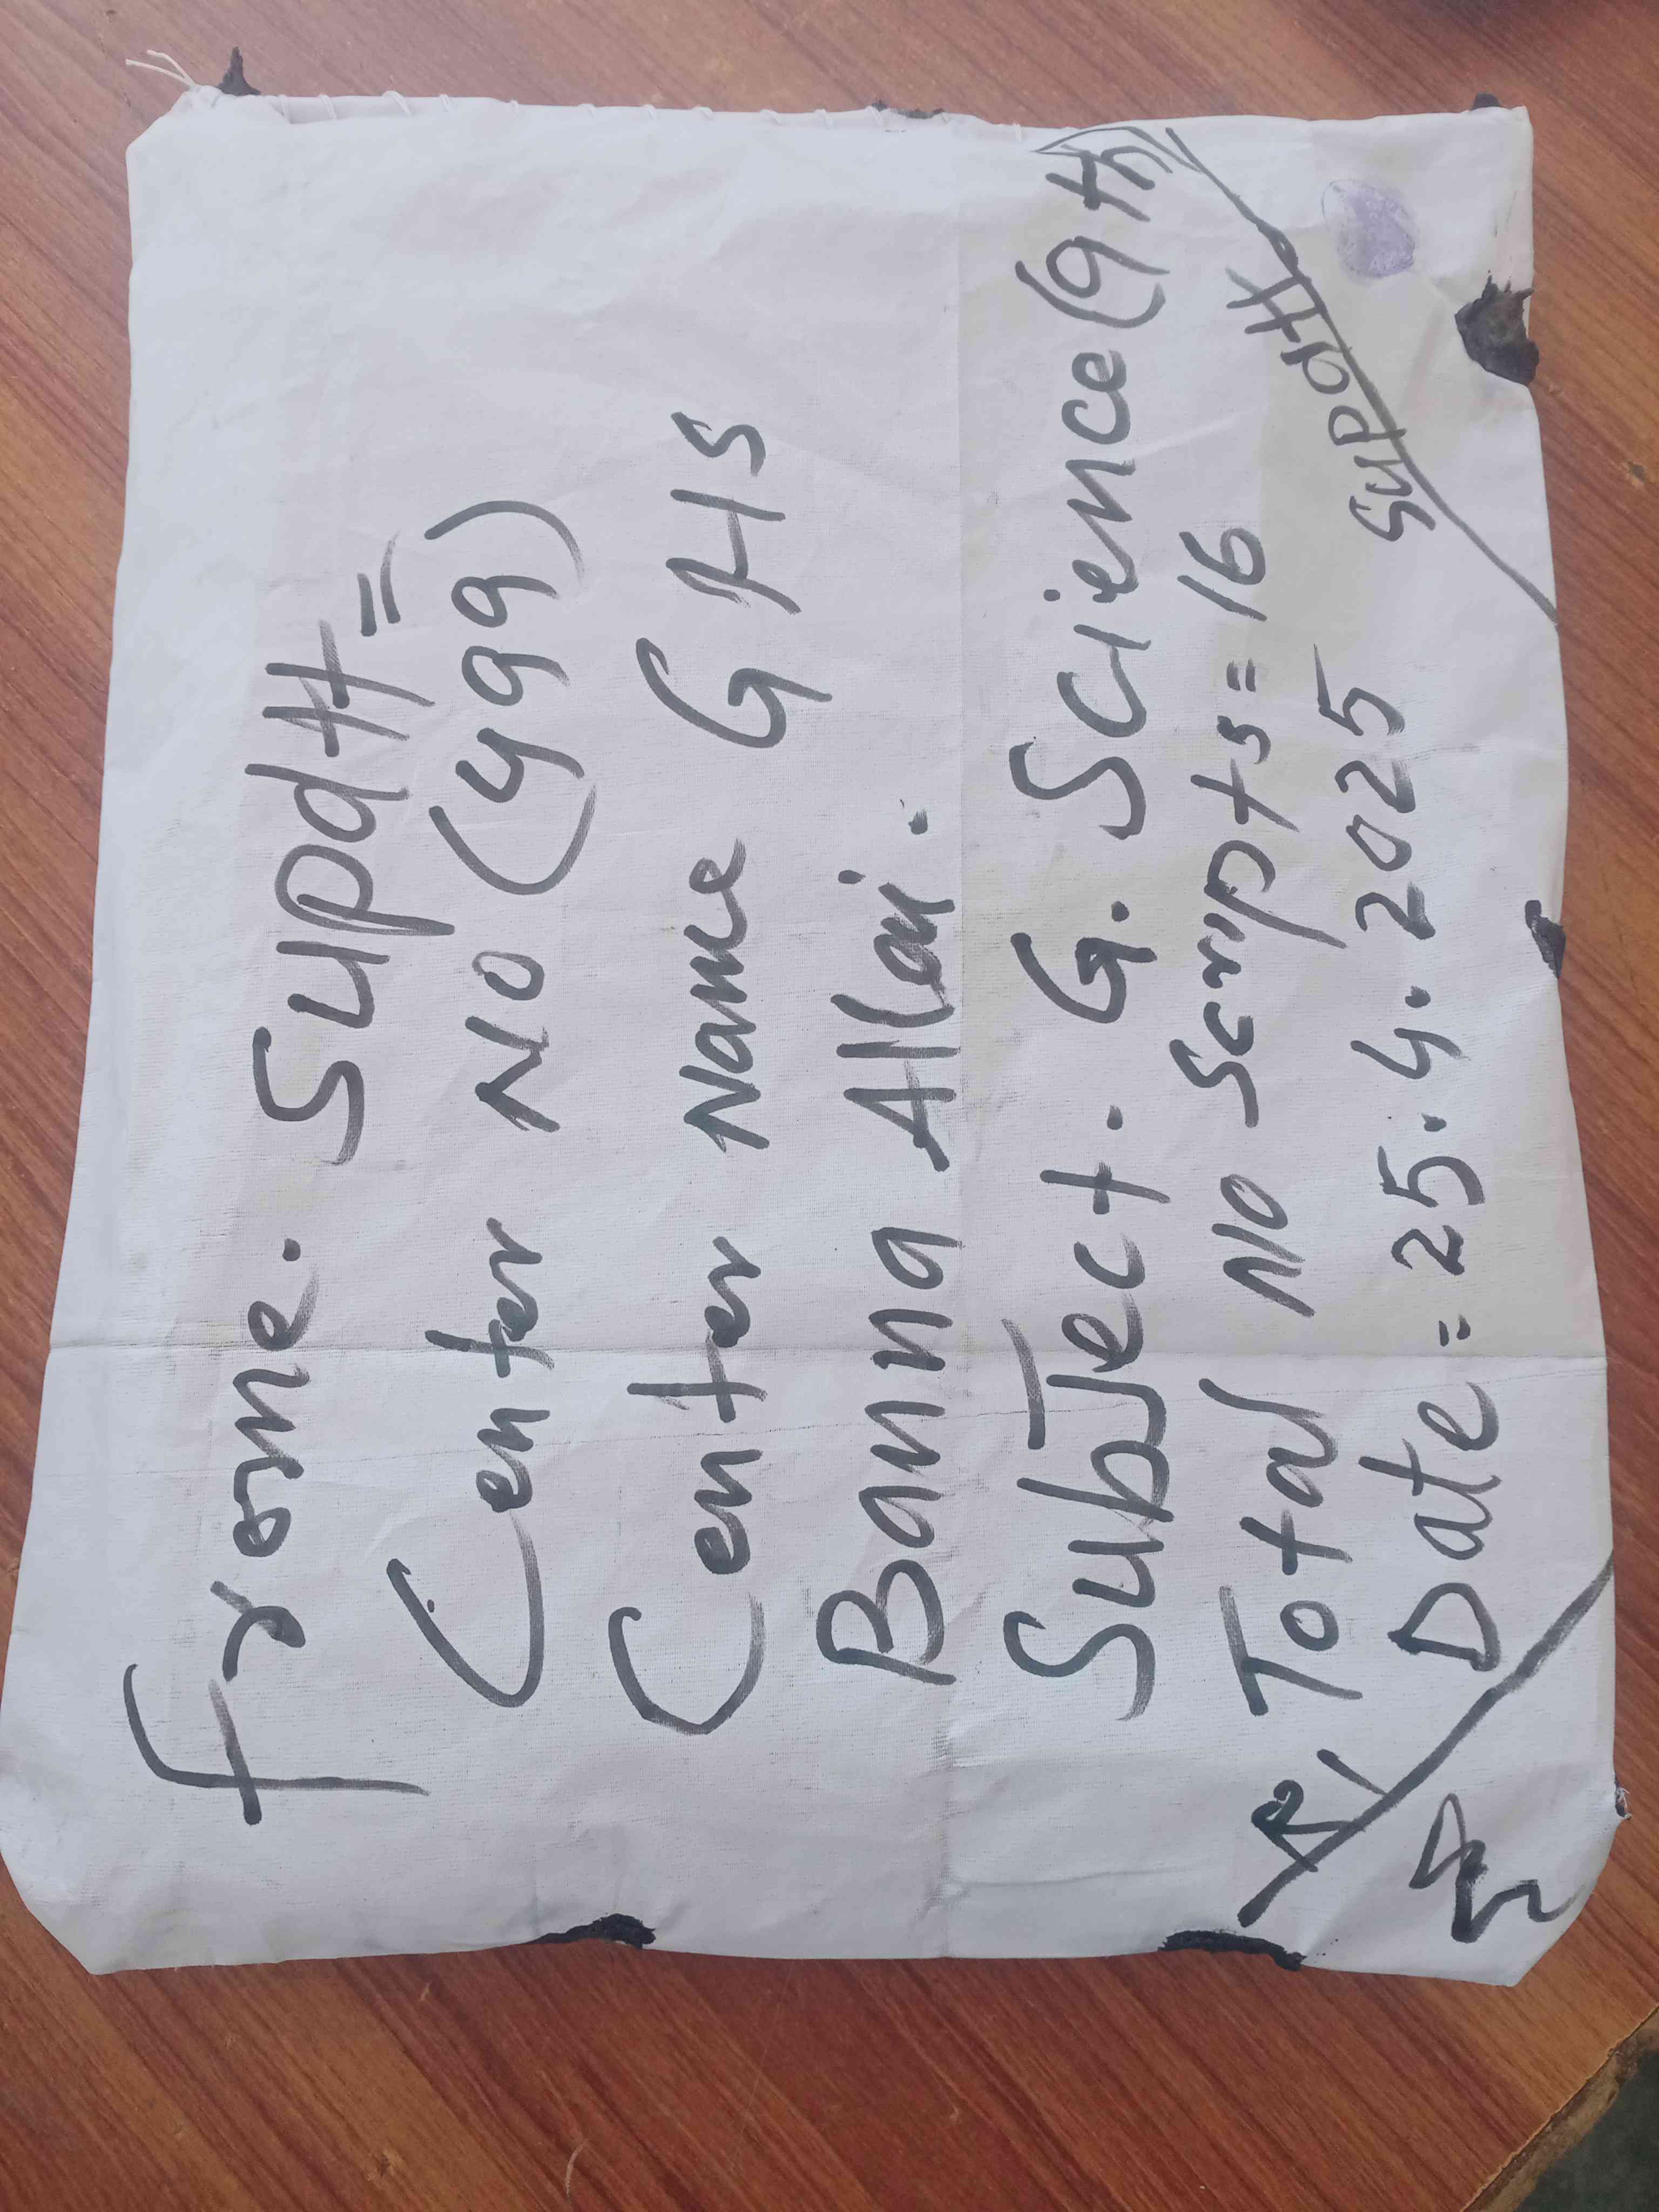 From. Supdtt=
Center No (499)
Center Name GHS
Banna Allai.
Subject. G. Science (9th
Total No Scripts=16
Date = 25.4.2025
Supdtt